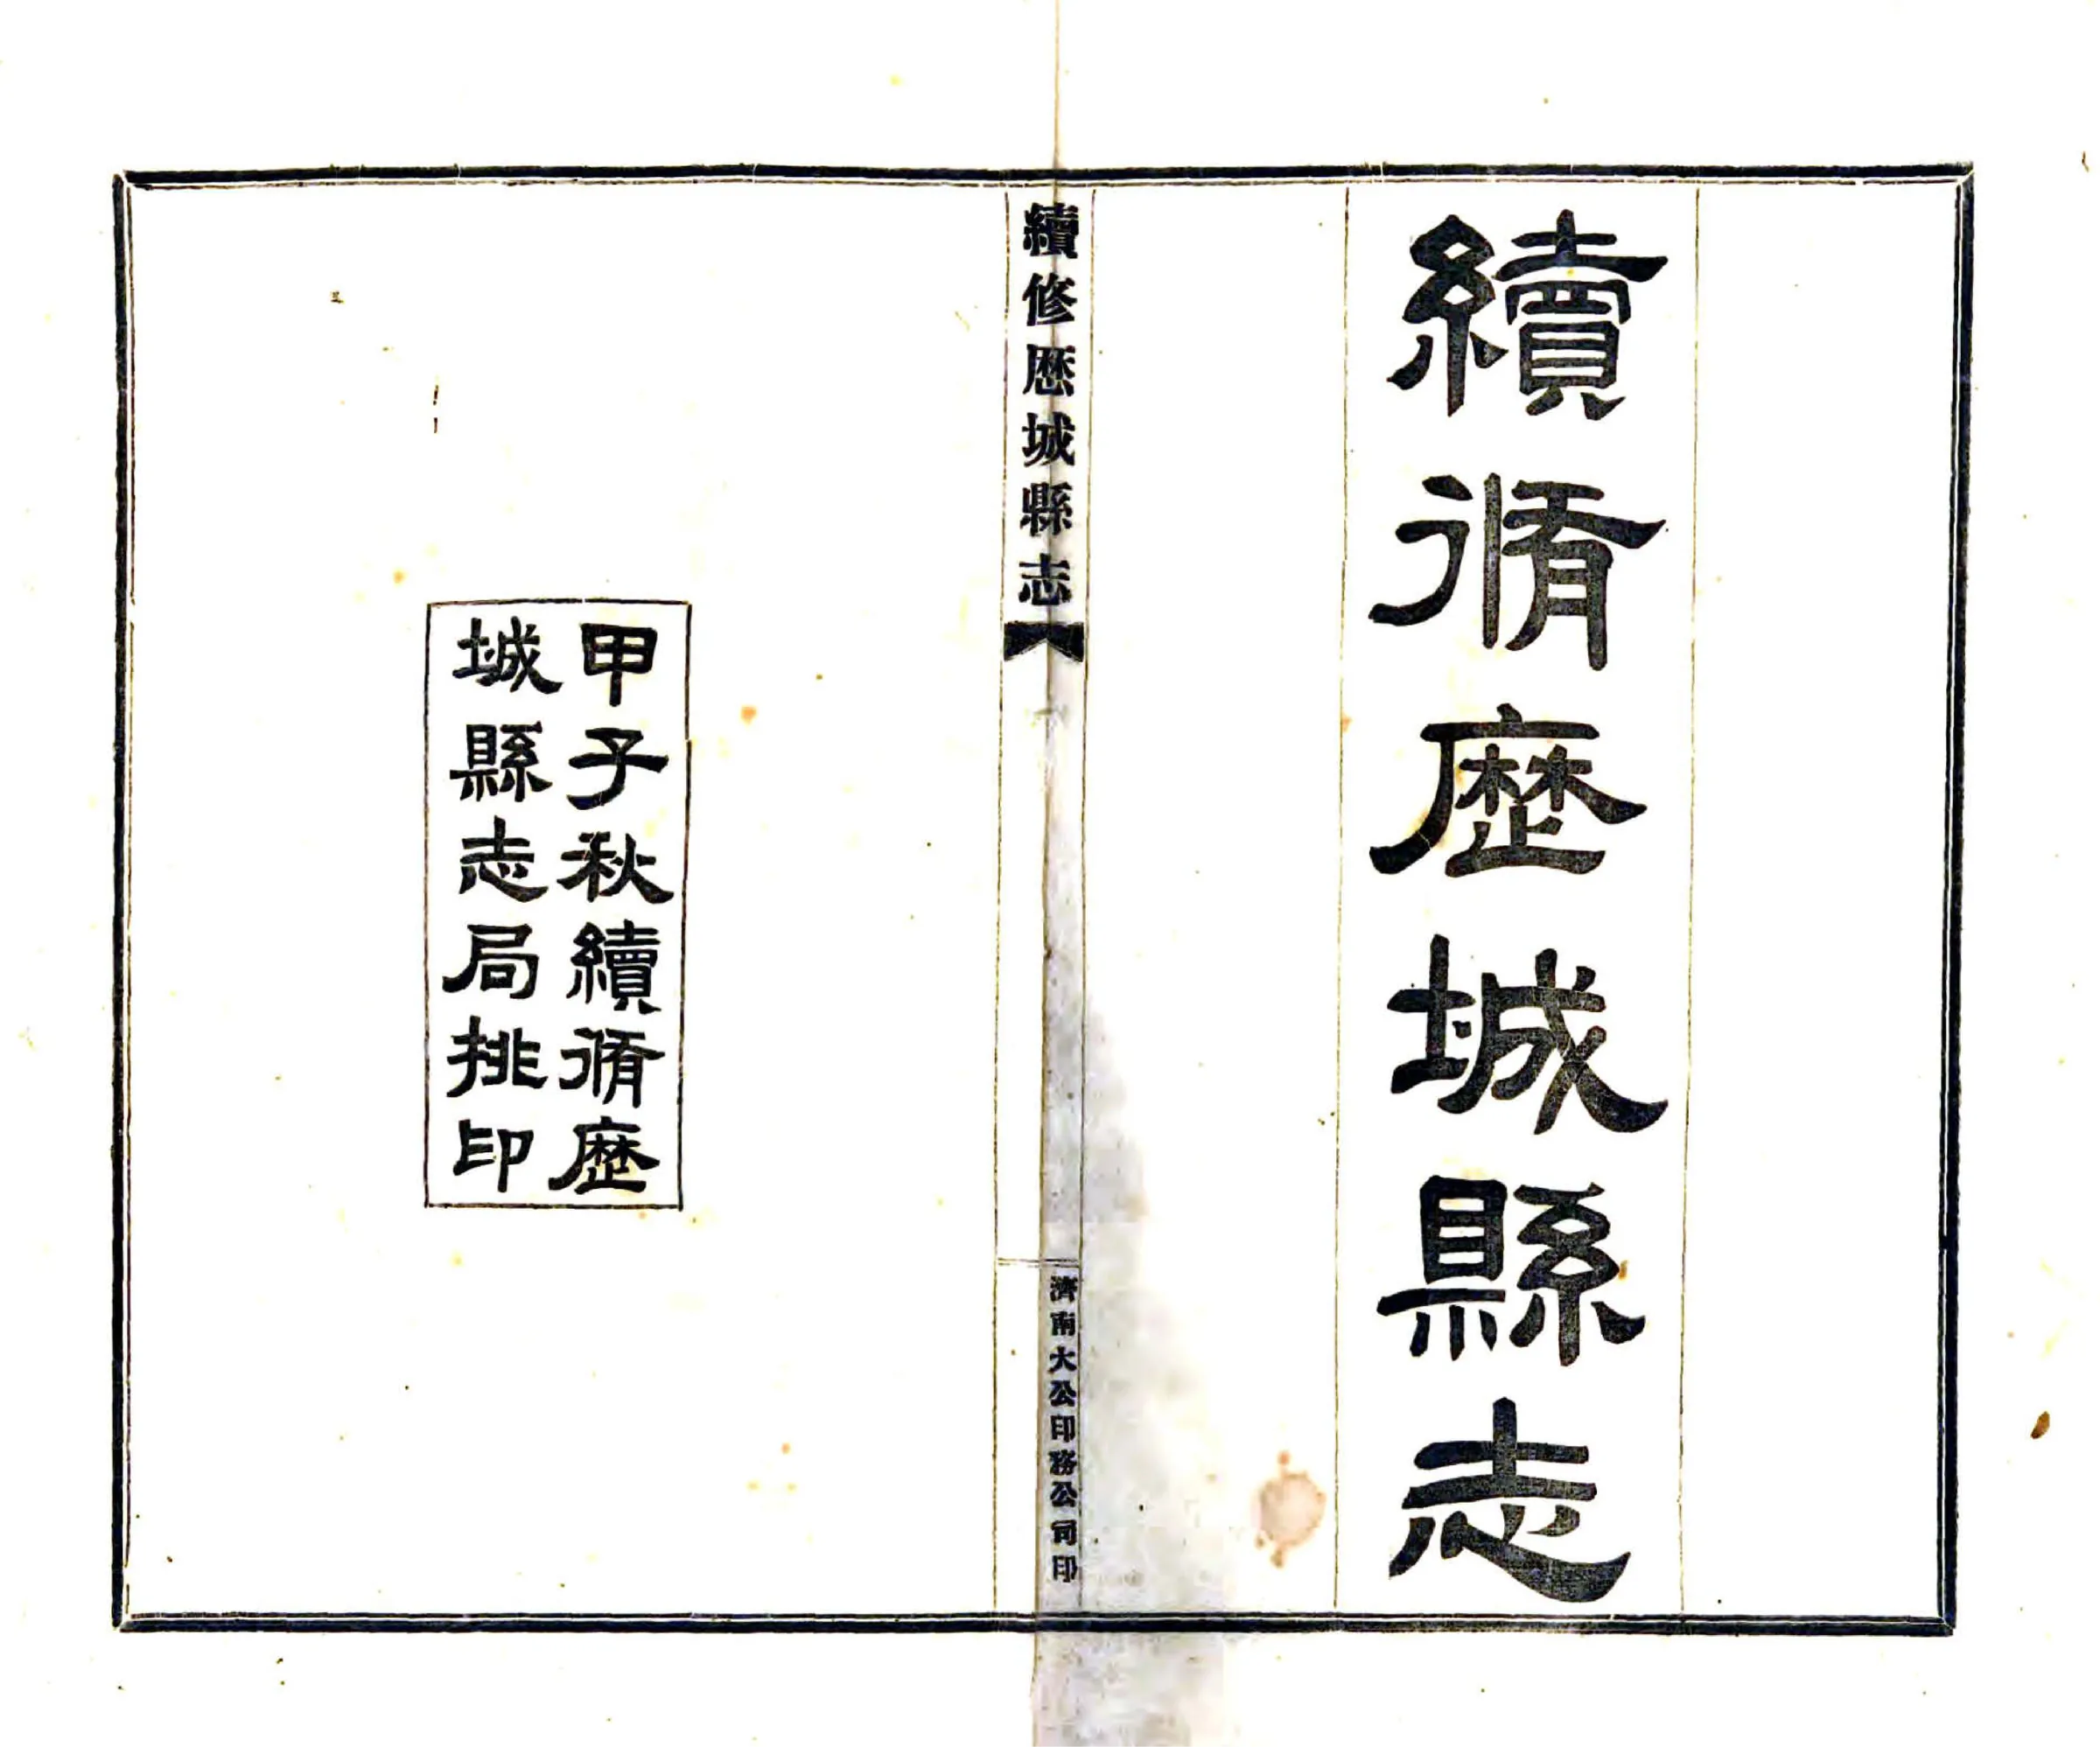 續脩歷城縣志
續修歷城縣志
濟南大公印務公司印
甲子秋續脩歷
城縣志局排印